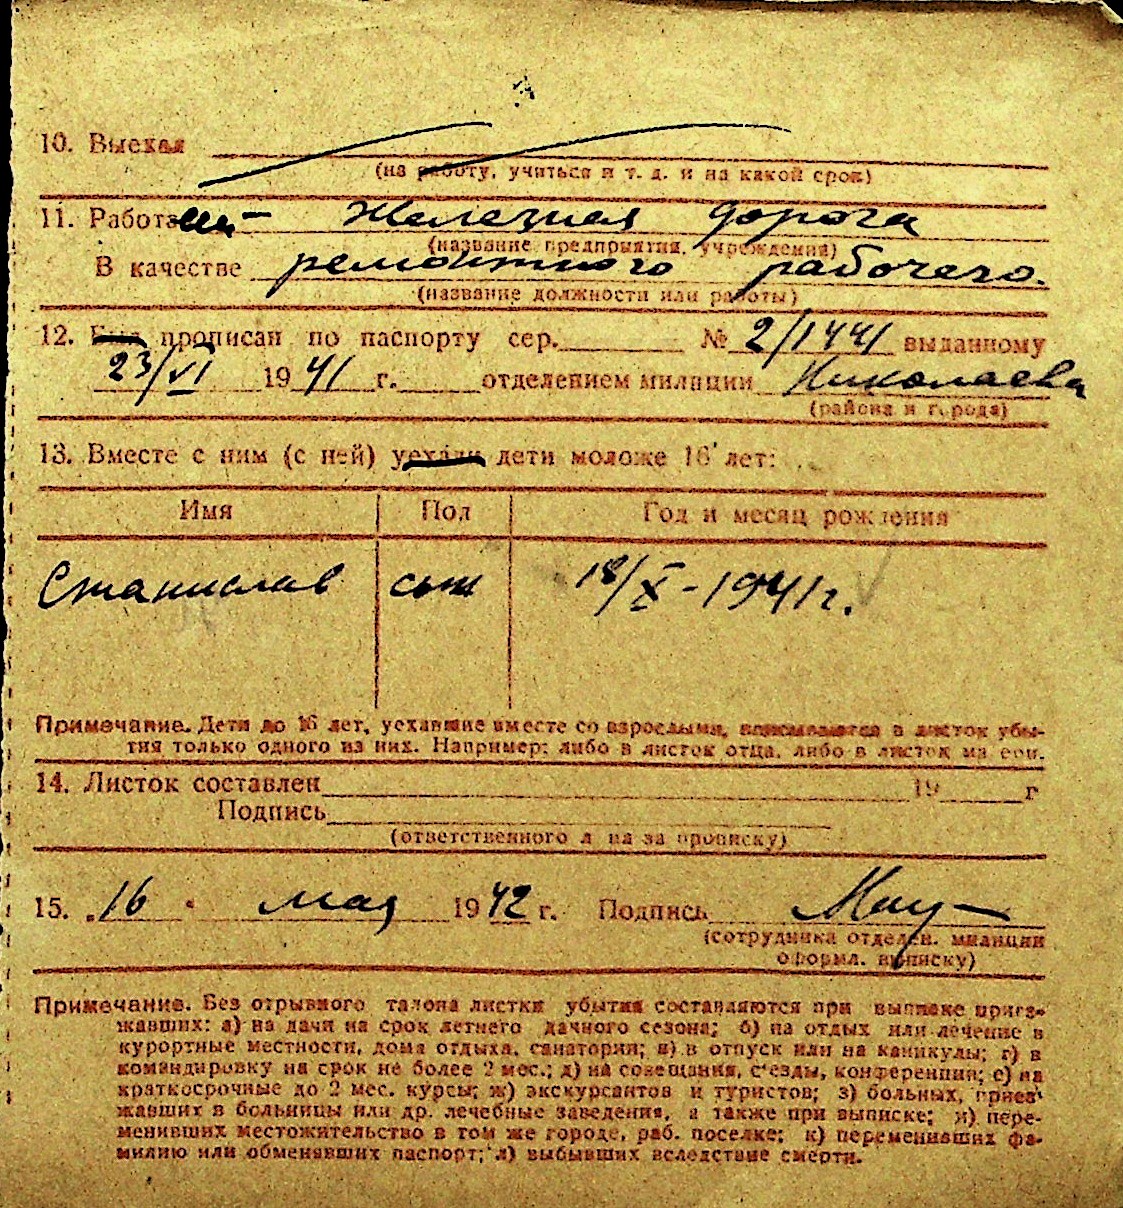 10. Выехал
(на работу, учиться и т. д. и на какой срок)
11. Работа Железная дорога
(название предприятия, учреждения)
В качестве ремонтного рабочего.
(название должности или работы)
12. Был прописан по паспорту сер. № 2/1441 выданному
23/VI 1941 г. отделением милиции Николаева
(района и города)
13. Вместе с ним (с ней) уехали дети моложе 16 лет:
Имя Пол Год и месяц рождения
Станислав сын 18/X-1941г.
Примечание. Дети до 16 лет, уехавшие вместе со взрослыми, вписываются в листок убы-
тия только одного из них. Например: либо в листок отца, либо в листок матери.
14. Листок составлен 19 г
Подпись
(ответственного лица за прописку)
15. „16" мая 1942 г. Подпись
(сотрудника отделен. милиции
оформл. выписку)
Примечание. Без отрывного талона листки убытия составляются при выписке приез-
жавших: а) на дачи на срок летнего дачного сезона; б) на отдых или лечение в
курортные местности, дома отдыха, санатории; в) в отпуск или на каникулы; г) в
командировку на срок не более 2 мес.; д) на совещания, с'езды, конференции; е) на
краткосрочные до 2 мес. курсы; ж) экскурсантов и туристов; з) больных, приез-
жавших в больницы или др. лечебные заведения, а также при выписке; и) пере-
менивших местожительство в том же городе, раб. поселке; к) переменивших фа-
милию или обменявших паспорт; л) выбывших вследствие смерти.